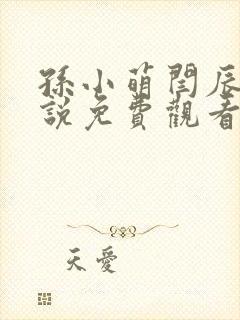 孫小萌閆辰
說免費觀看
天愛